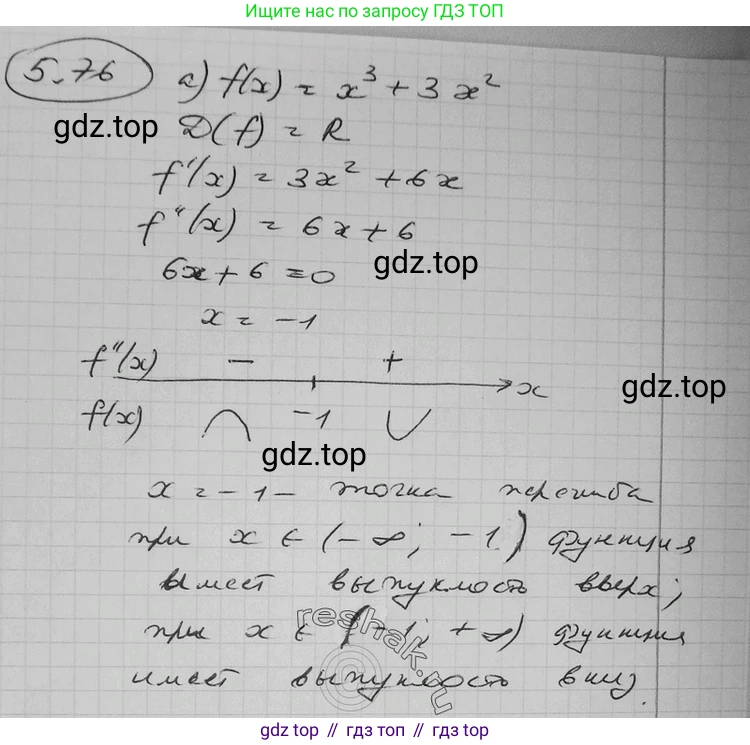 Ищите нас по запросу ГДЗ ТОП
5.76 а) f(x) = x³ + 3x²
gdz.top
D(f) = R
f'(x) = 3x² + 6x
f"(x) = 6x + 6
6x + 6 = 0
gdz.top
x = -1
f"(x) − +
x
gdz.top
f(x) -1
gdz.top
x = -1 - точка перегиба
при x ∈ (-∞; -1) функция
имеет выпуклость вверх;
при x ∈ (-1; +∞) функция
имеет выпуклость вниз.
reshak.ru
gdz top // гдз топ // gdz top